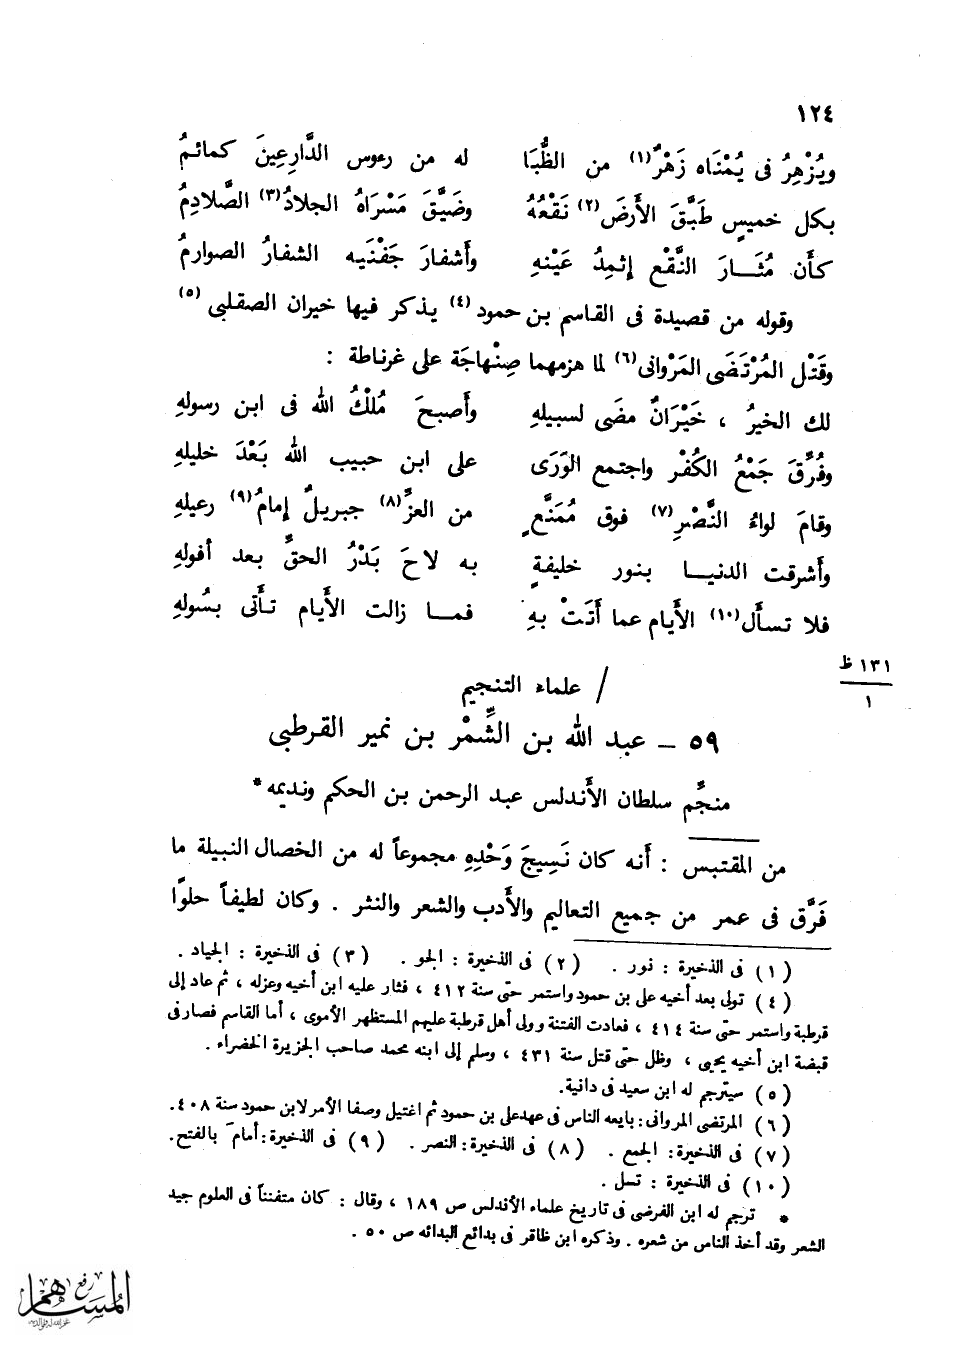 ١٢٤
ويُزْهِرُ فى يُمْنَاه زَهْرٌ(١) من الظُّبَا له من رءوس الدَّارِعِينَ كمائمُ
بكل خميسٍ طَبَّقَ الأَرضَ(٢) نَقْعُهُ وضَيَّقَ مَسْرَاهُ الجلادُ(٣) الصَّلادِمُ
كأَن مُثَارَ النَّقْعِ إِثمِدُ عَيْنهِ وأَشفارَ جَفْنَيه الشفارُ الصوارمُ
وقوله من قصيدة فى القاسم بن حمود(٤) يذكر فيها خيران الصقلبى(٥)
وقَتْل المُرْتَضَى المَرْوانى(٦) لما هزمهما صِنْهاجَة على غرناطة :
لك الخيرُ ، خَيْرَانٌ مضَى لسبيلهِ وأَصبحَ مُلْكُ الله فى ابن رسولهِ
وفُرِّقَ جَمْعُ الكُفْر واجتمع الوَرَى على ابن حبيب الله بَعْدَ خليلهِ
وقامَ لواءُ النَّصْرِ(٧) فوق مُمَنَّعٍ من العزِّ(٨) جبريلٌ إِمامُ(٩) رعيلهِ
وأَشرقت الدنيا بنور خليفةٍ به لاحَ بَدْرُ الحقِّ بعد أفولهِ
فلا تسأَل(١٠) الأَيام عما أَتَتْ بهِ فما زالت الأَيام تأتى بسُولهِ
١٣١ ظ
١
/ علماء التنجيم
٥٩ – عبد الله بن الشِّمْر بن نمير القرطبى
منجِّم سلطان الأَندلس عبد الرحمن بن الحكم ونديمه *
من المقتبس : أَنه كان نَسِيجَ وَحْدِهِ مجموعاً له من الخصال النبيلة ما
فَرَّق فى عمر من جميع التعاليم والأَدب والشعر والنثر . وكان لطيفاً حلوًا
(١) فى الذخيرة : نور . (٢) فى الذخيرة : الجو . (٣) فى الذخيرة : الجياد .
(٤) تولى بعد أخيه على بن حمود واستمر حتى سنة ٤١٢ ، فثار عليه ابن أخيه وعزله ، ثم عاد إلى
قرطبة واستمر حتى سنة ٤١٤ ، فعادت الفتنة وولى أهل قرطبة عليهم المستظهر الأموى ، أما القاسم فصار فى
قبضة ابن أخيه يحيى ، وظل حتى قتل سنة ٤٣١ ، وسلم إلى ابنه محمد صاحب الجزيرة الخضراء .
(٥) سيترجم له ابن سعيد فى دانية.
(٦) المرتضى المروانى: بايعه الناس فى عهد على بن حمود ثم اغتيل وصفا الأمر لابن حمود سنة ٤٠٨.
(٧) فى الذخيرة: الجمع . (٨) فى الذخيرة: النصر . (٩) فى الذخيرة: أمامَ بالفتح.
(١٠) فى الذخيرة : تسل .
* ترجم له ابن الفرضى فى تاريخ علماء الأندلس ص ١٨٩ ، وقال : كان متفنناً فى العلوم جيد
الشعر وقد أخذ الناس من شعره . وذكره ابن ظافر فى بدائع البدائه ص ٥٠ .